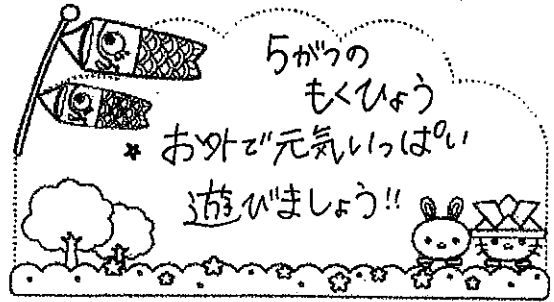 5がつの
もくひょう
お外で元気いっぱい
遊びましょう!!